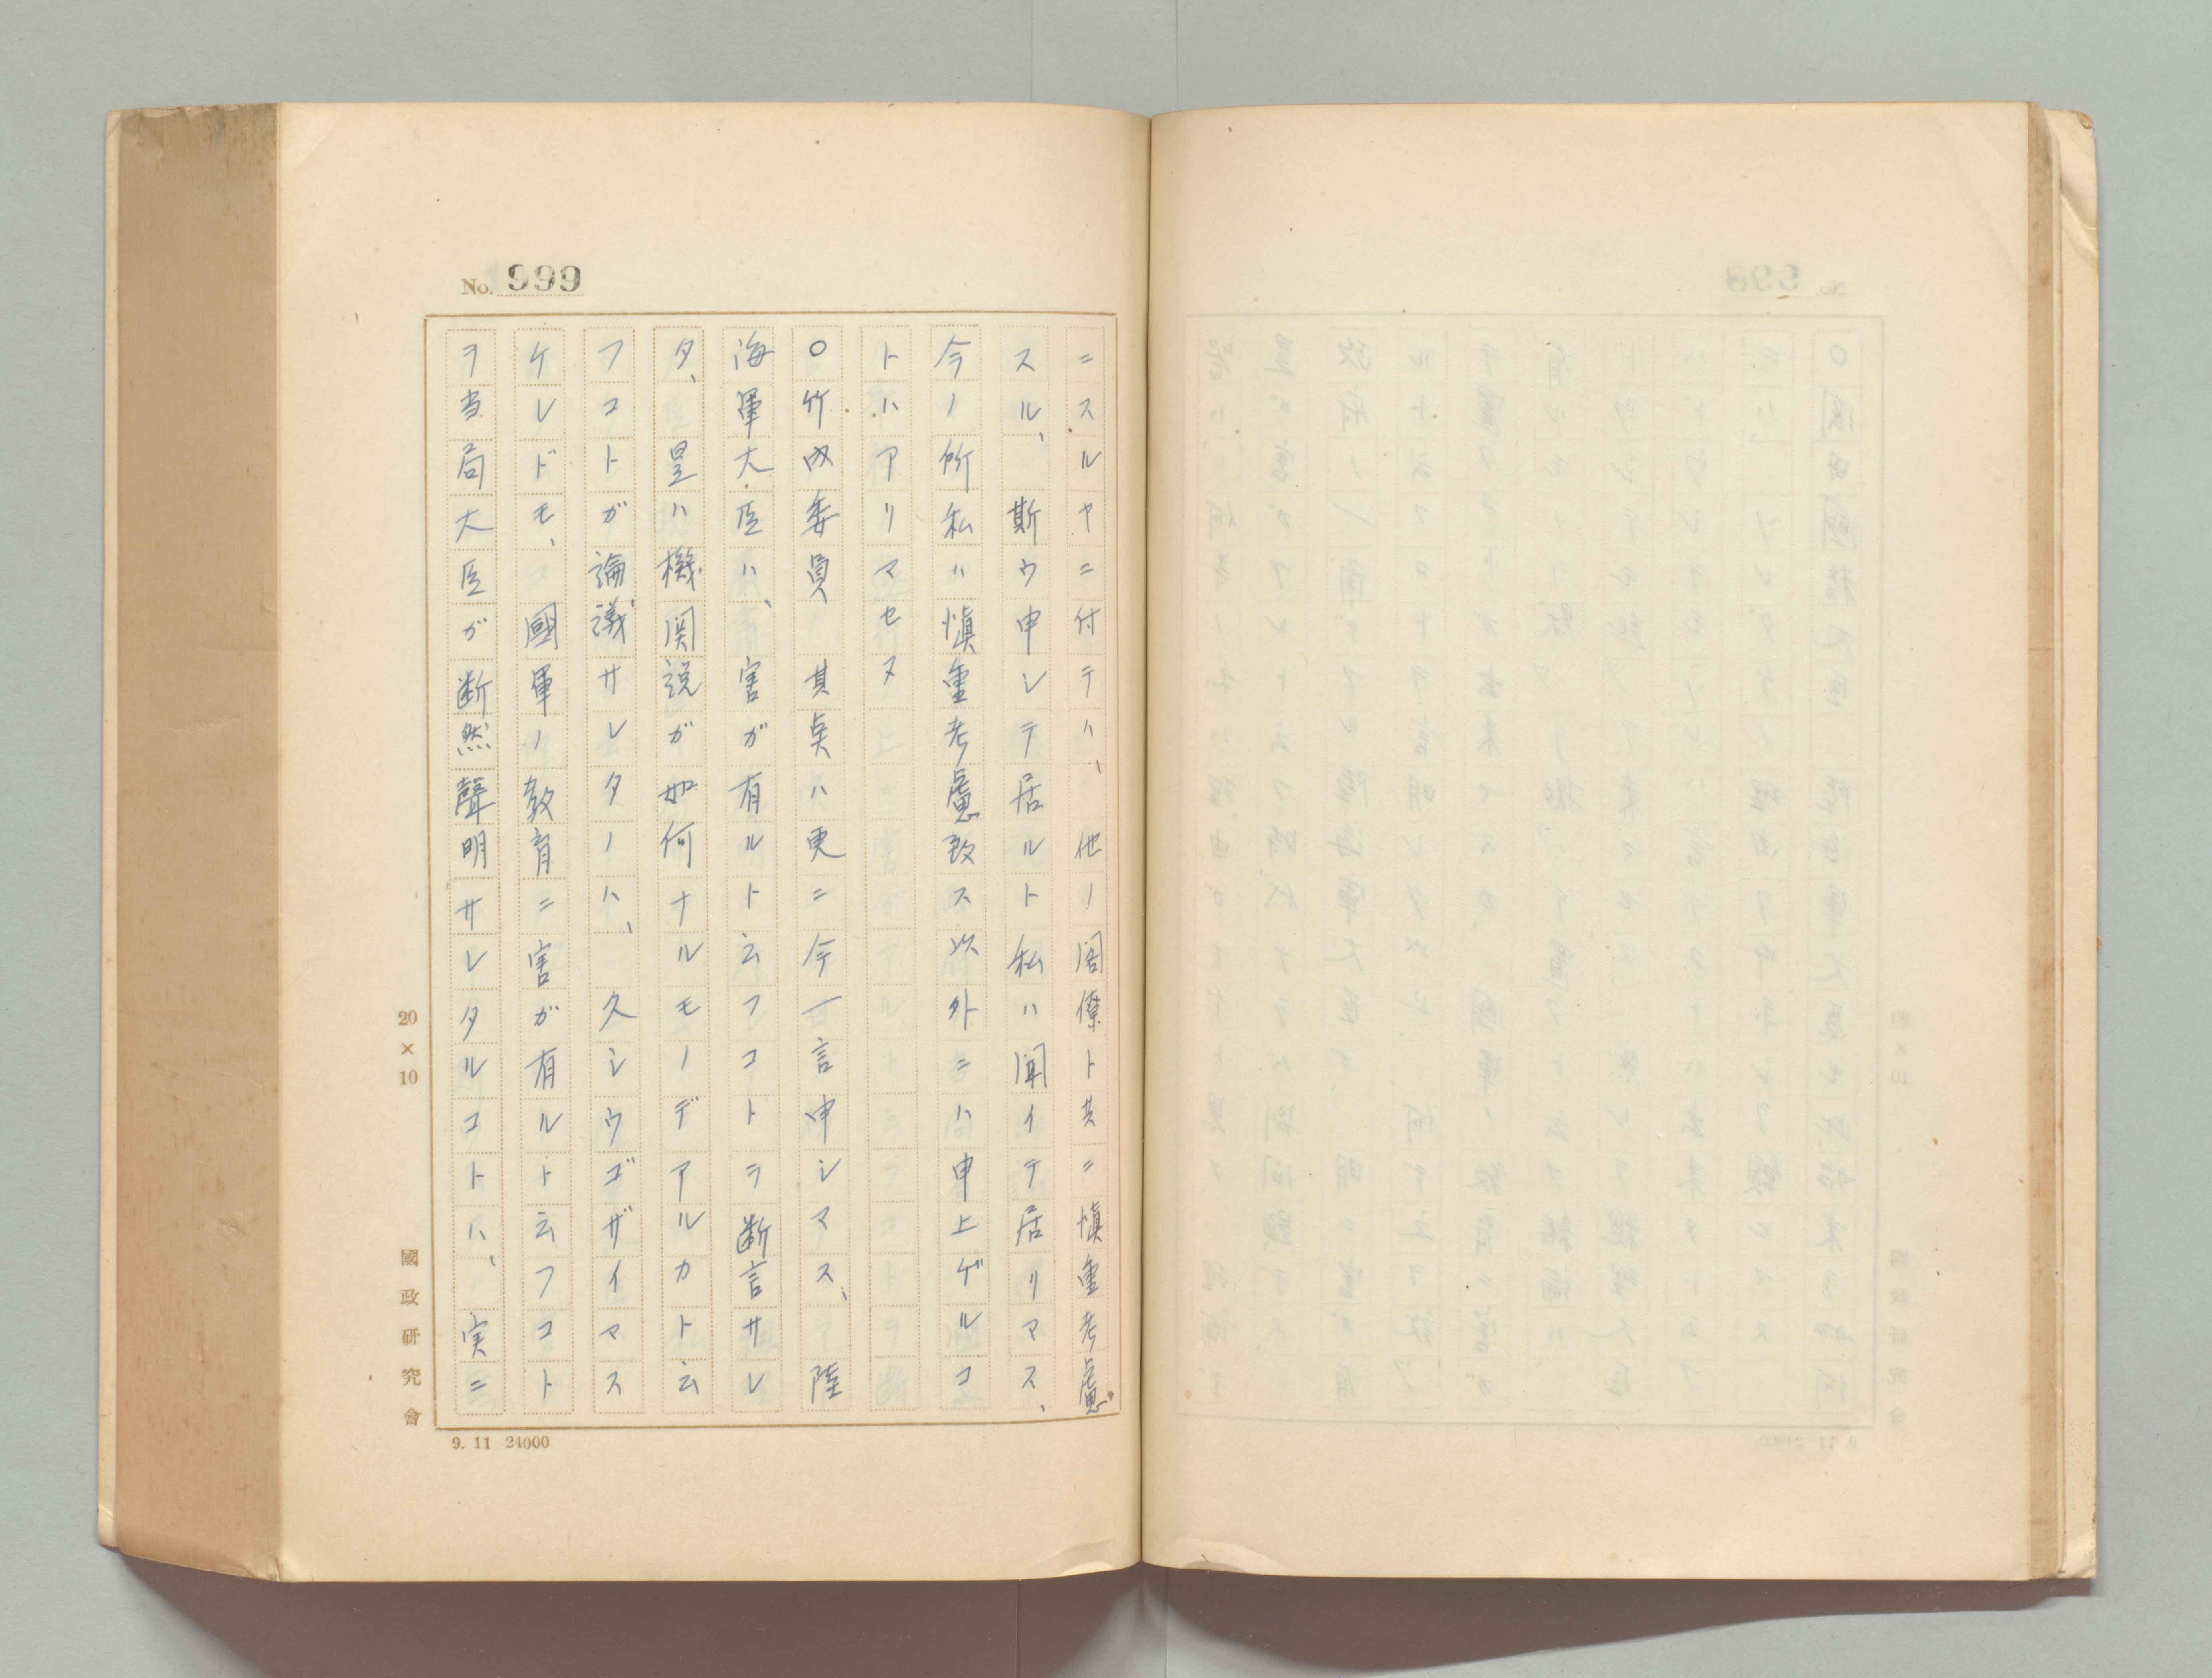 No. 999
ニスルヤニ付テハ、他ノ閣僚ト共ニ慎重考慮
スル、斯ウ申シテ居ルト私ハ聞イテ居リマス、
今ノ所私ハ慎重考慮致ス以外ニハ申上ゲルコ
トハアリマセヌ
○竹内委員　其点ハ更ニ今一言申シマス、陸
海軍大臣ハ、害ガ有ルト云フコトヲ断言サレ
タ、是ハ機関説ガ如何ナルモノデアルカト云
フコトガ論議サレタノハ、久シウゴザイマス
ケレドモ、國軍ノ教育ニ害ガ有ルト云フコト
ヲ当局大臣ガ断然聲明サレタルコトハ、実ニ
20×10
國政研究會
9. 11 24000